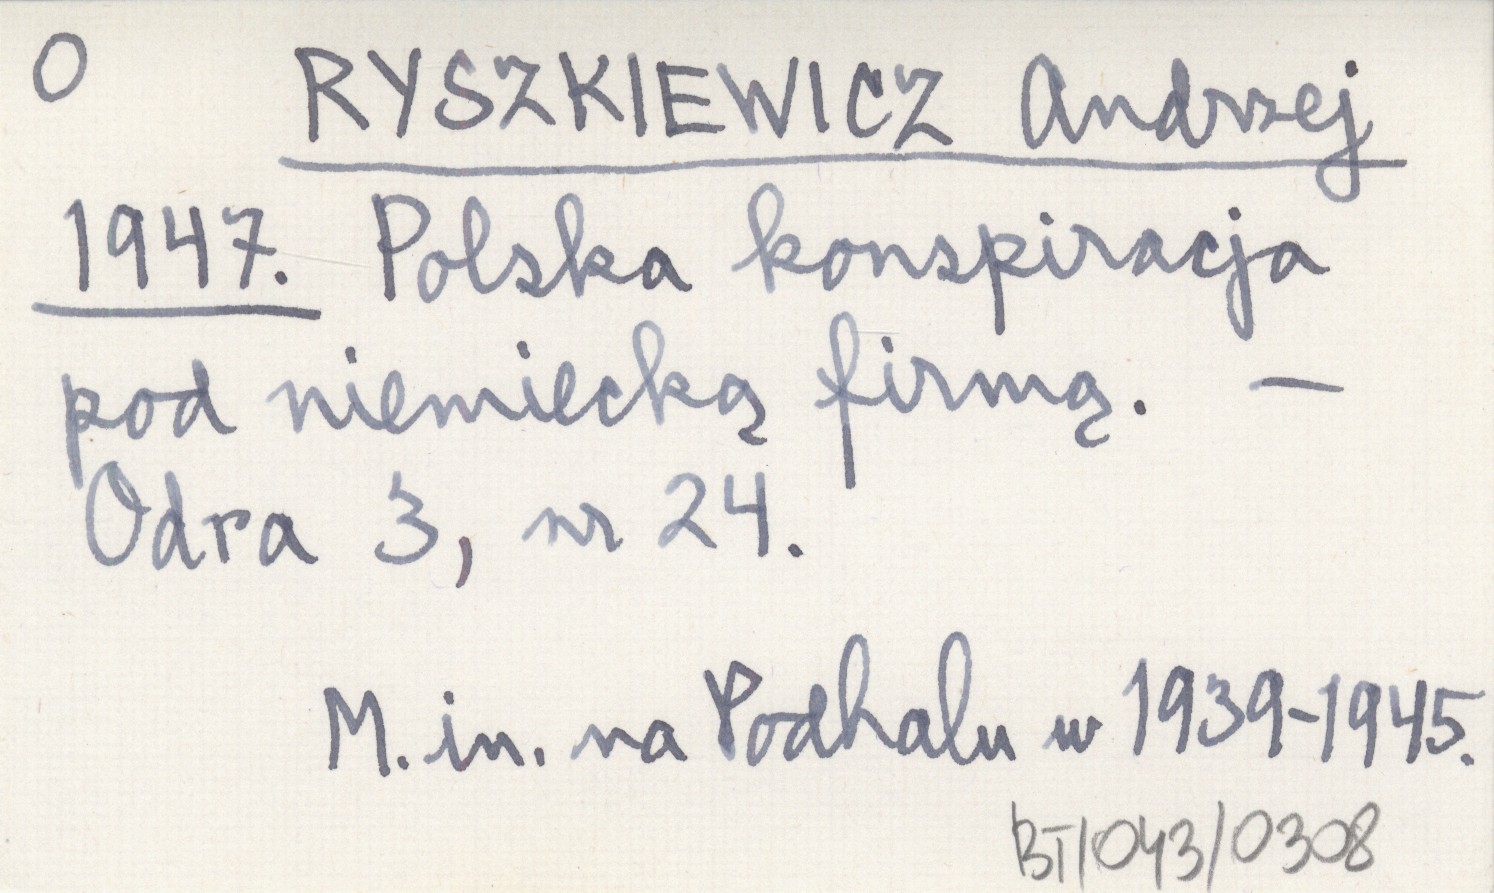 O RYSZKIEWICZ Andrzej
1947. Polska konspiracja
pod niemiecką firmą. —
Odra 3, nr 24.
M. in. na Podhalu w 1939-1945.
BT/043/0308